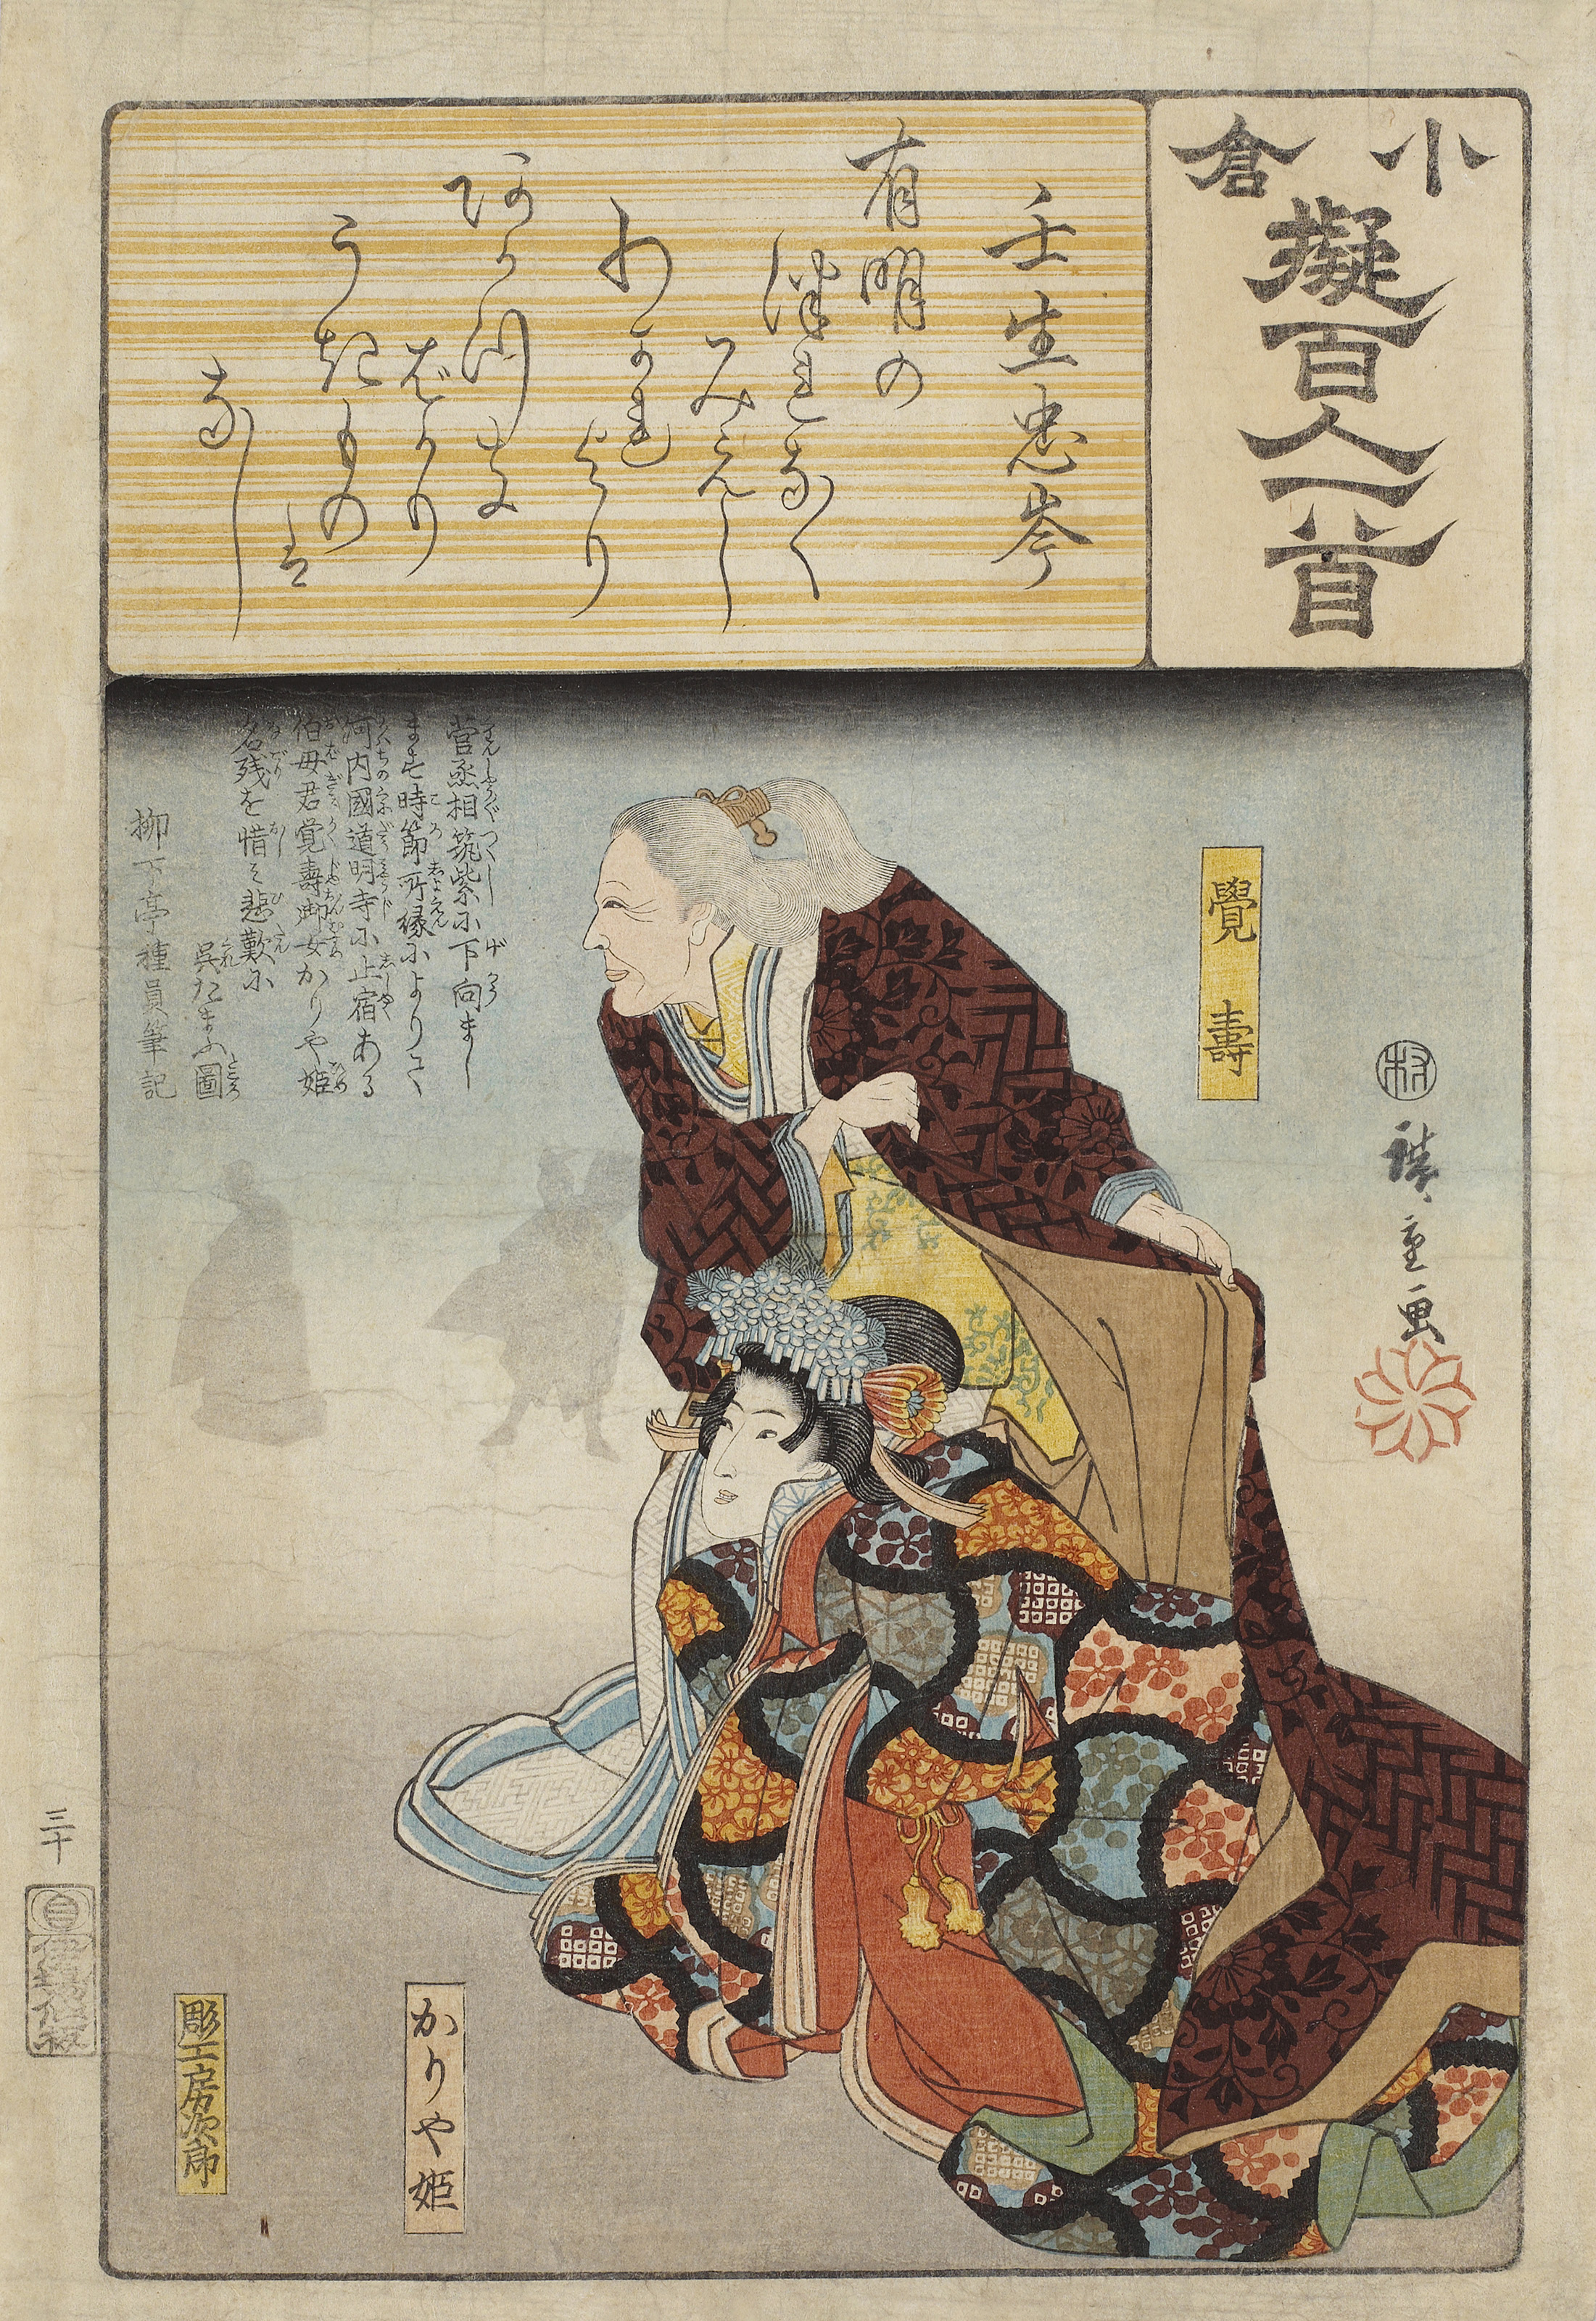 小倉
擬百人一首
壬生忠岑
有明の
津れなく
みえし
わかれ
より
阿か川支
ばかり
うきもの
者
なし
菅丞相筑紫に下向まし
ます時節所縁によりて
河内國道明寺に止宿ある
伯母君覚壽御女かりや姫
名残を惜み悲歎に
呉たまふ圖
柳下亭種員筆記
覺壽
廣重画
かりや姫
彫工房次郎
三十
伊場仙板